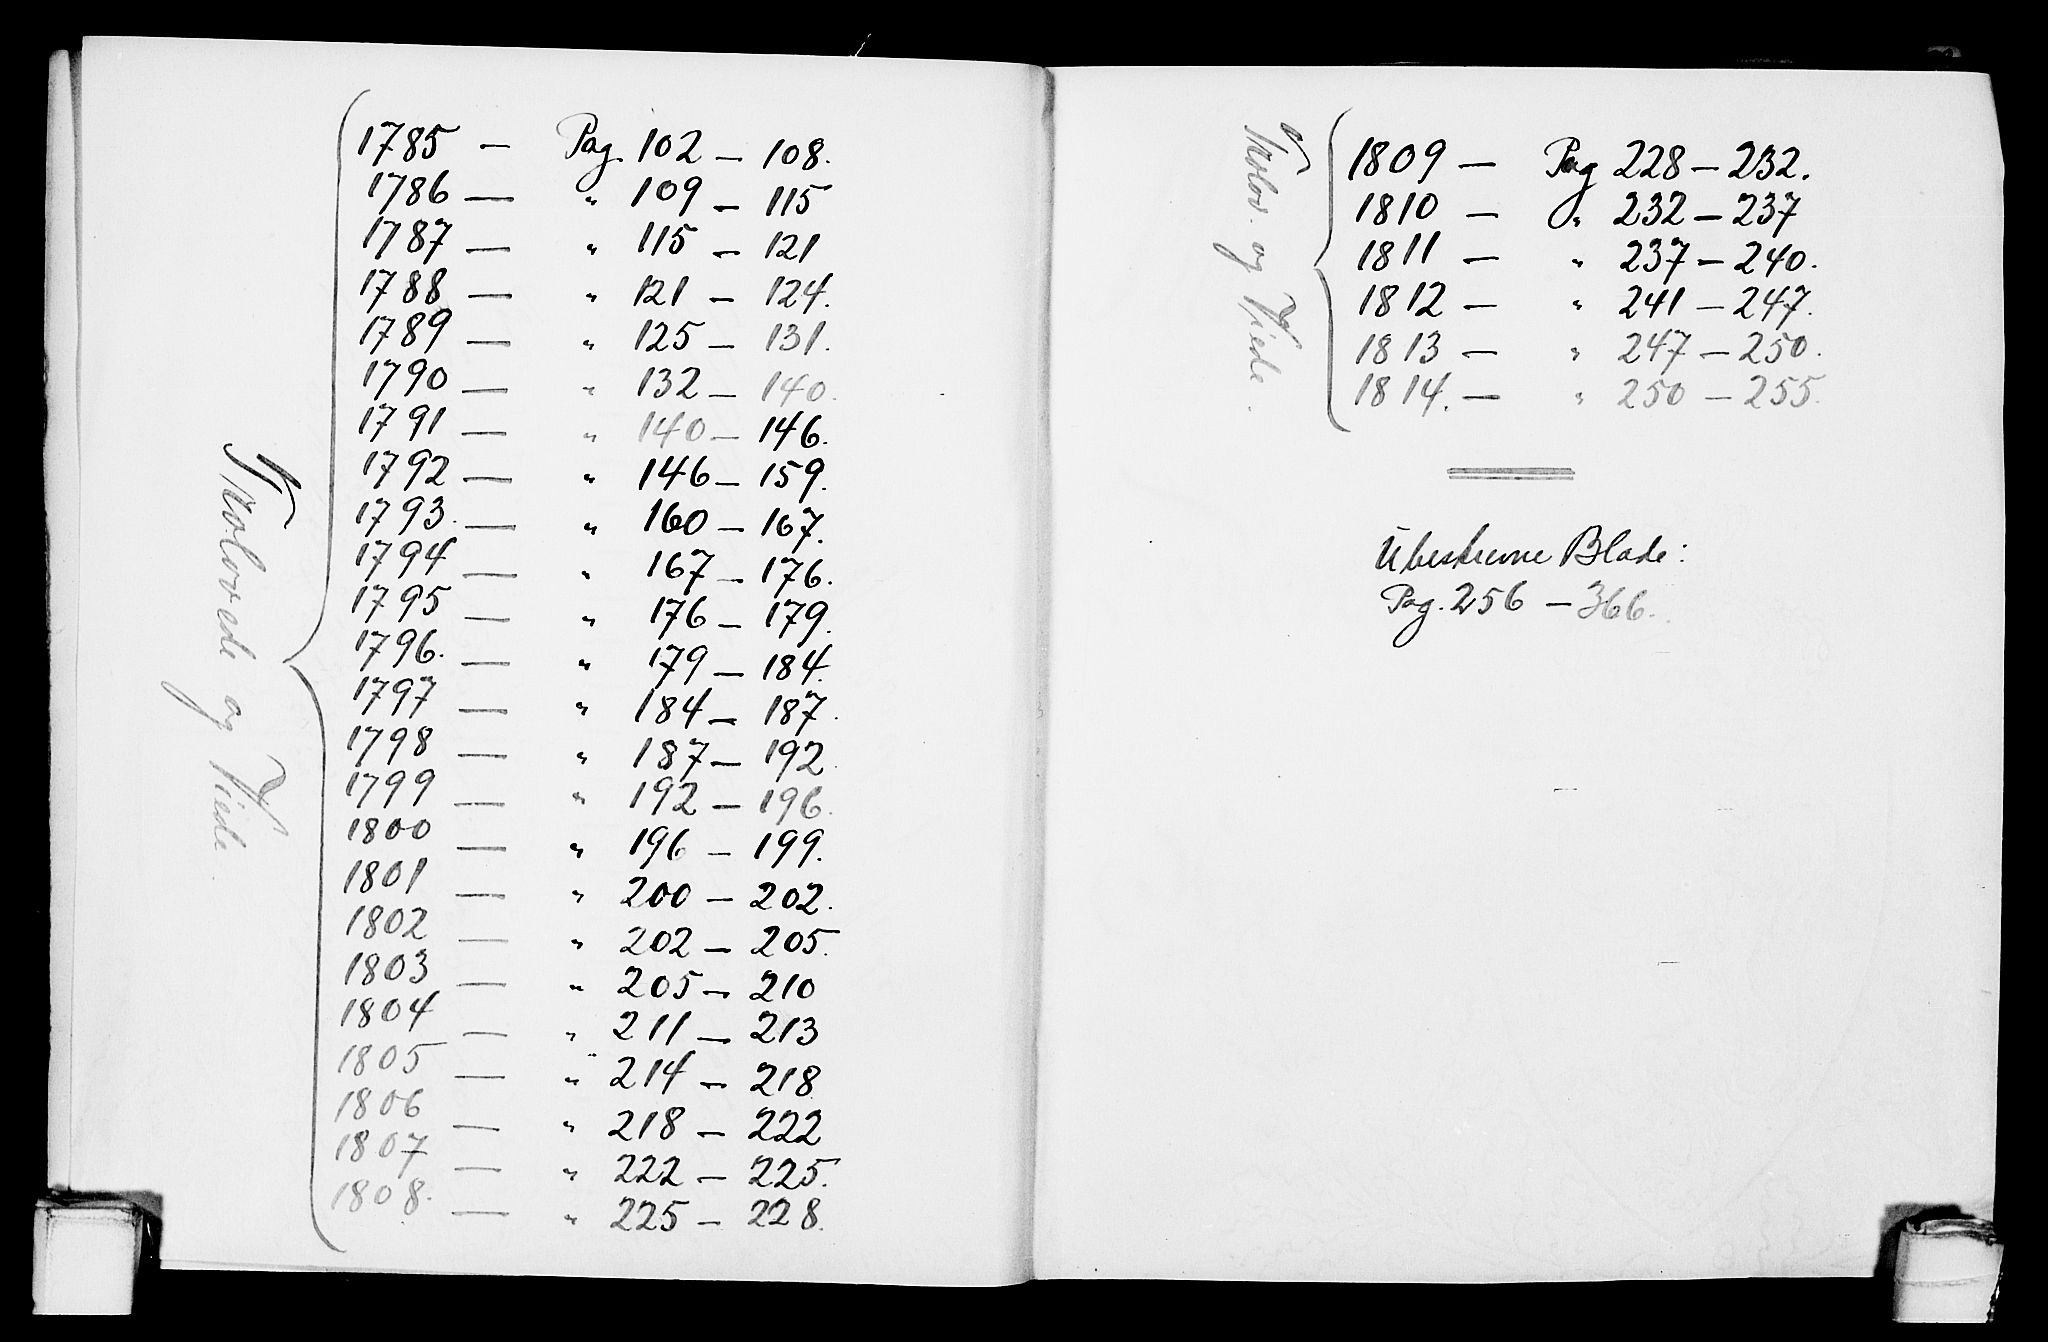 Trolovede og Viede
1785 — Pag. 102 — 108.
1786 — " 109 — 115
1787 — " 115 — 121
1788 — " 121 — 124.
1789 — " 125 — 131.
1790 — " 132 — 140.
1791 — " 140 — 146.
1792 — " 146 — 159.
1793. — " 160 — 167.
1794 — " 167 — 176.
1795 — " 176 — 179.
1796. — " 179 — 184.
1797 — " 184 — 187.
1798 — " 187 — 192
1799 — " 192 — 196.
1800 — " 196 — 199.
1801 — " 200 — 202.
1802 — " 202 — 205.
1803 — " 205 — 210
1804 — " 211 — 213
1805 — " 214 — 218
1806 — " 218 — 222
1807 — " 222 — 225.
1808. — " 225 — 228.
Trolov. og Viede.
1809 — Pag 228 — 232.
1810 — " 232 — 237
1811 — " 237 — 240.
1812 — " 241 — 247.
1813 — " 247 — 250.
1814. — " 250 — 255.
Ubeskrevne Blade:
Pag. 256 — 366.